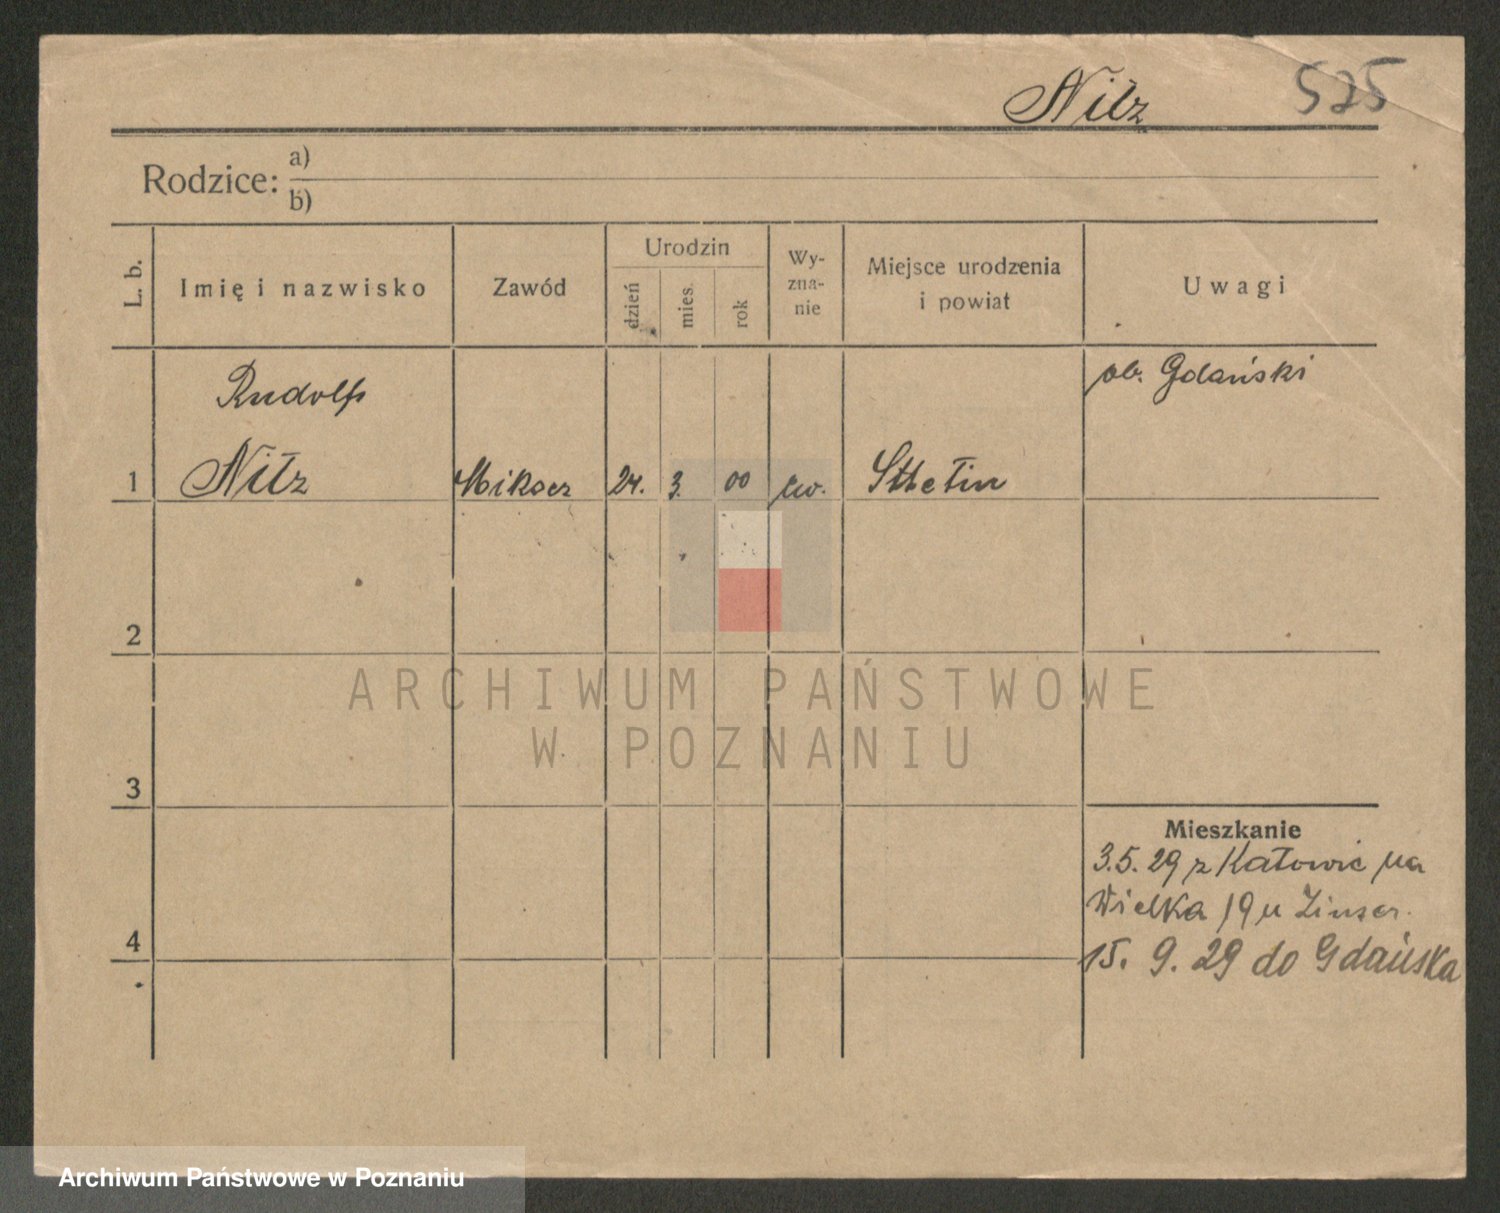 Nitz 525
Rodzice: a)
b)
L. b. Imię i nazwisko Zawód Urodzin dzień mies. rok Wy-zna-nie Miejsce urodzenia i powiat Uwagi
Rudolf ob. Gdański
1 Nitz Mikser 24. 3. 00 ew. Stettin
2
ARCHIWUM PAŃSTWOWE
W POZNANIU
3
Mieszkanie
3.5.29 z Katowic na
Wielka 19 u Zinser.
4
15. 9. 29 do Gdańska
Archiwum Państwowe w Poznaniu